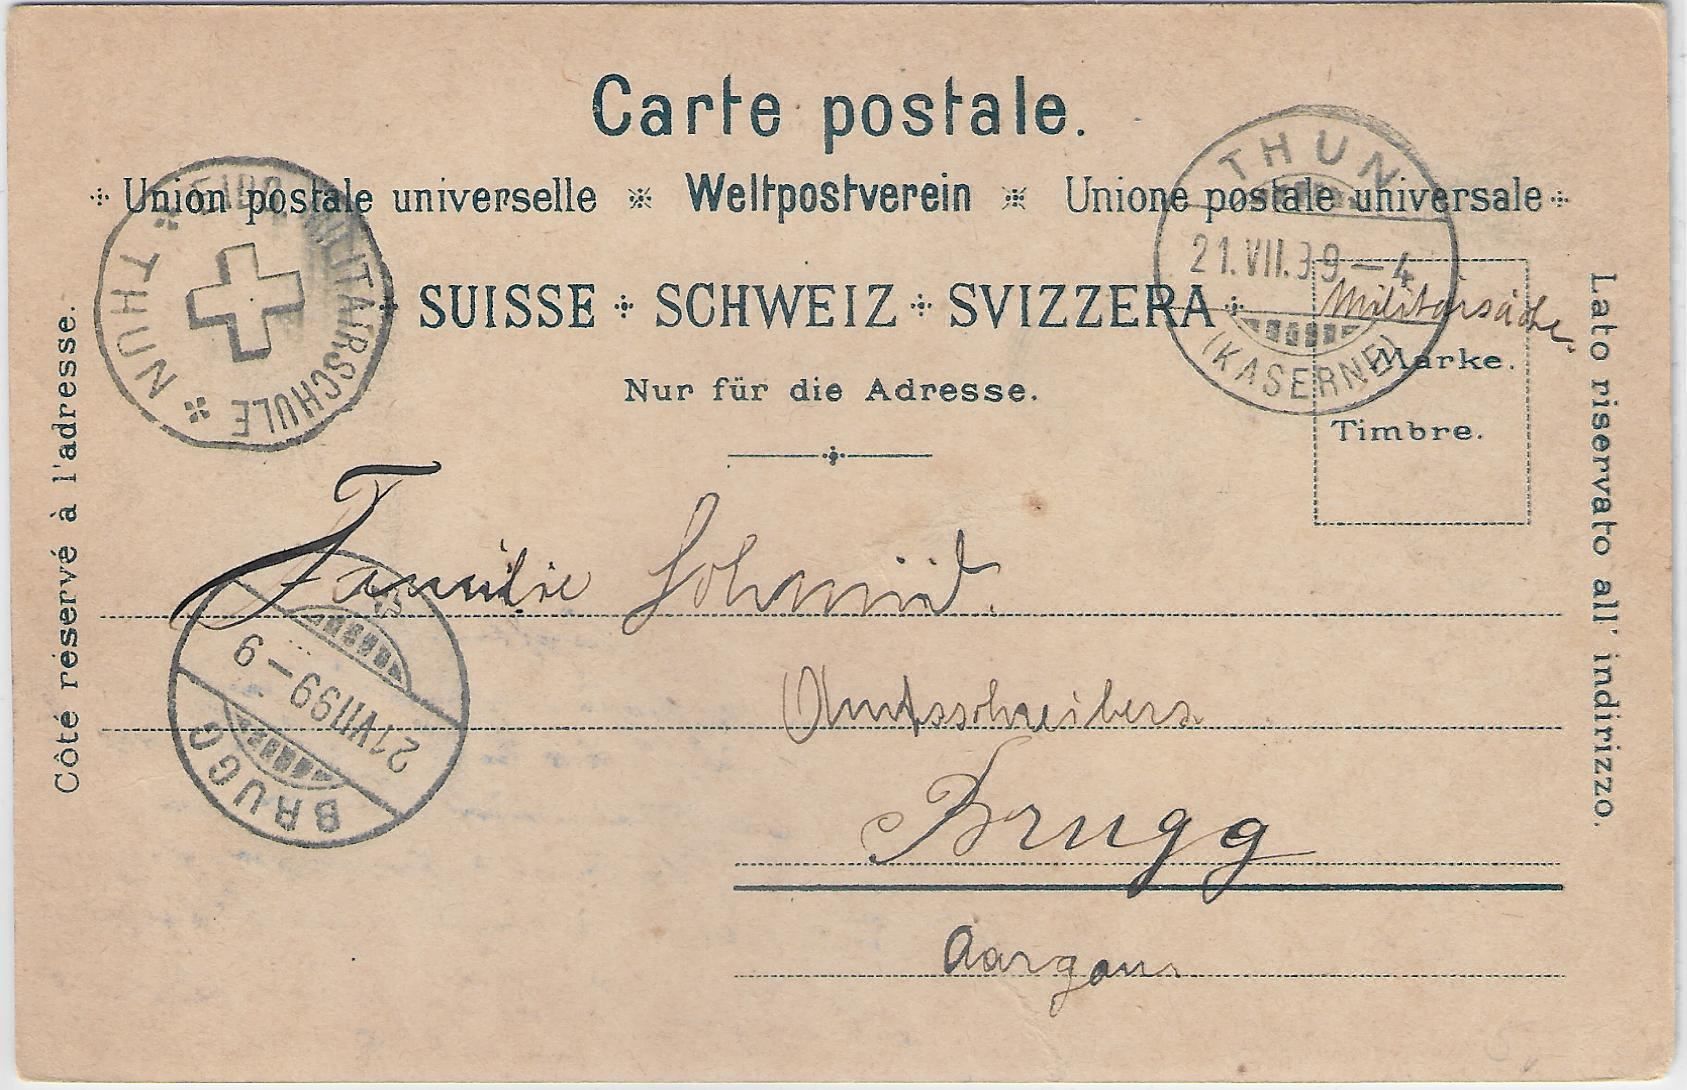 Carte postale.
Union postale universelle Weltpostverein Unione postale universale
SUISSE SCHWEIZ SVIZZERA
Nur für die Adresse.
EIDG. MILITÄRSCHULE
THUN
THUN
21.VII.99–4
(KASERNE)
Militärsache
Marke.
Timbre.
Côté réservé à l'adresse.
Lato riservato all' indirizzo.
Familie Schmid.
Amtsschreibers
Brugg
Aargau
21 VII 99–9
BRUGG